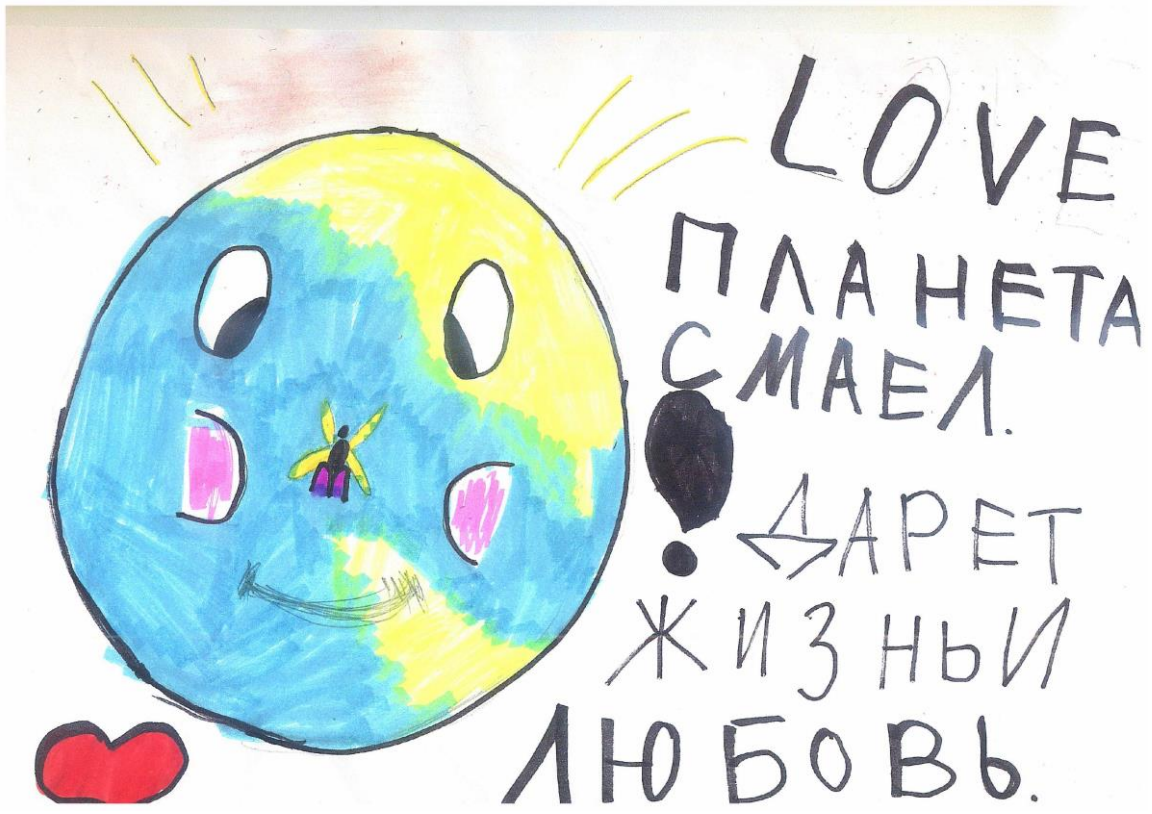 LOVE
ПЛАНЕТА
СМАЕЛ.
! ДАРЕТ
ЖИЗНЬ И
ЛЮБОВЬ.